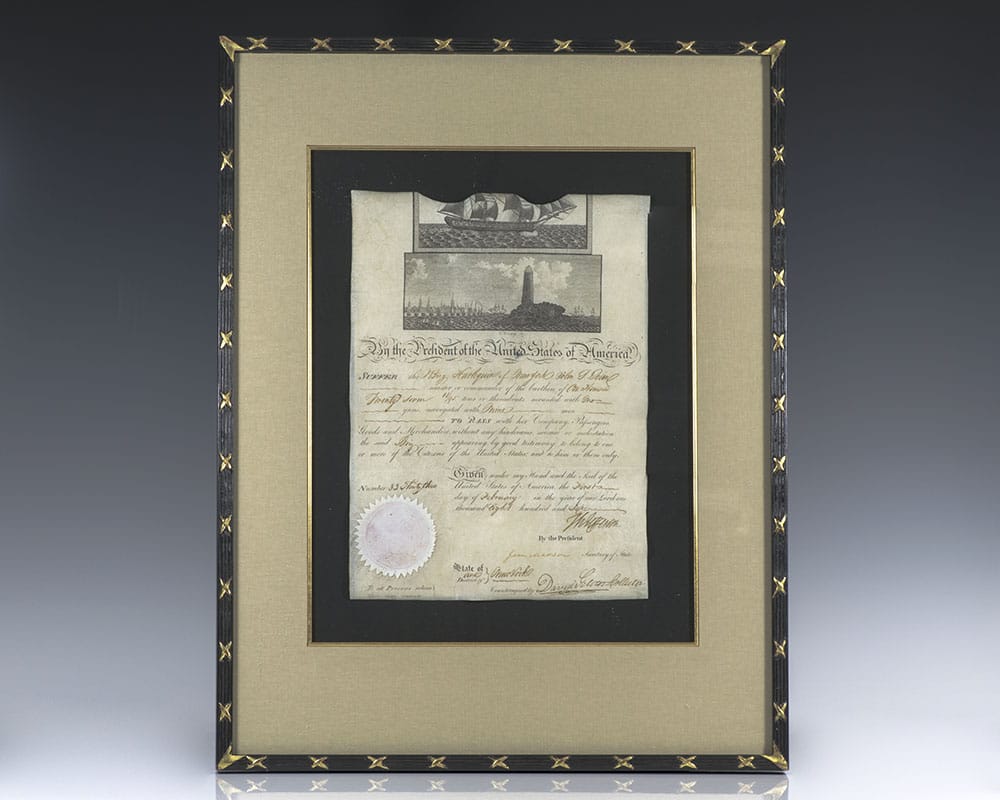 By the President of the United States of America,
SUFFER the Brig Harlequin of New York John G
master or commander of the burthen of One Hundred
Twenty Seven /95 tons or thereabouts mounted with No
guns navigated with Nine men
TO PASS with her Company, Passengers
Goods and Merchandize, without any hindrance, seisure or molestation
the said Brig appearing by good testimony to belong to one
or more of the Citizens of the United States; and to him or them only.
Given under my Hand and the Seal of the
Number 33 Thirty three
United States of America, the First
day of February in the year of our Lord one
thousand eight hundred and
Th Jefferson
By the President
James Madison Secretary of State.
State of
and
District of } New York
Countersigned by David Gelston Collector
To all Persons whom